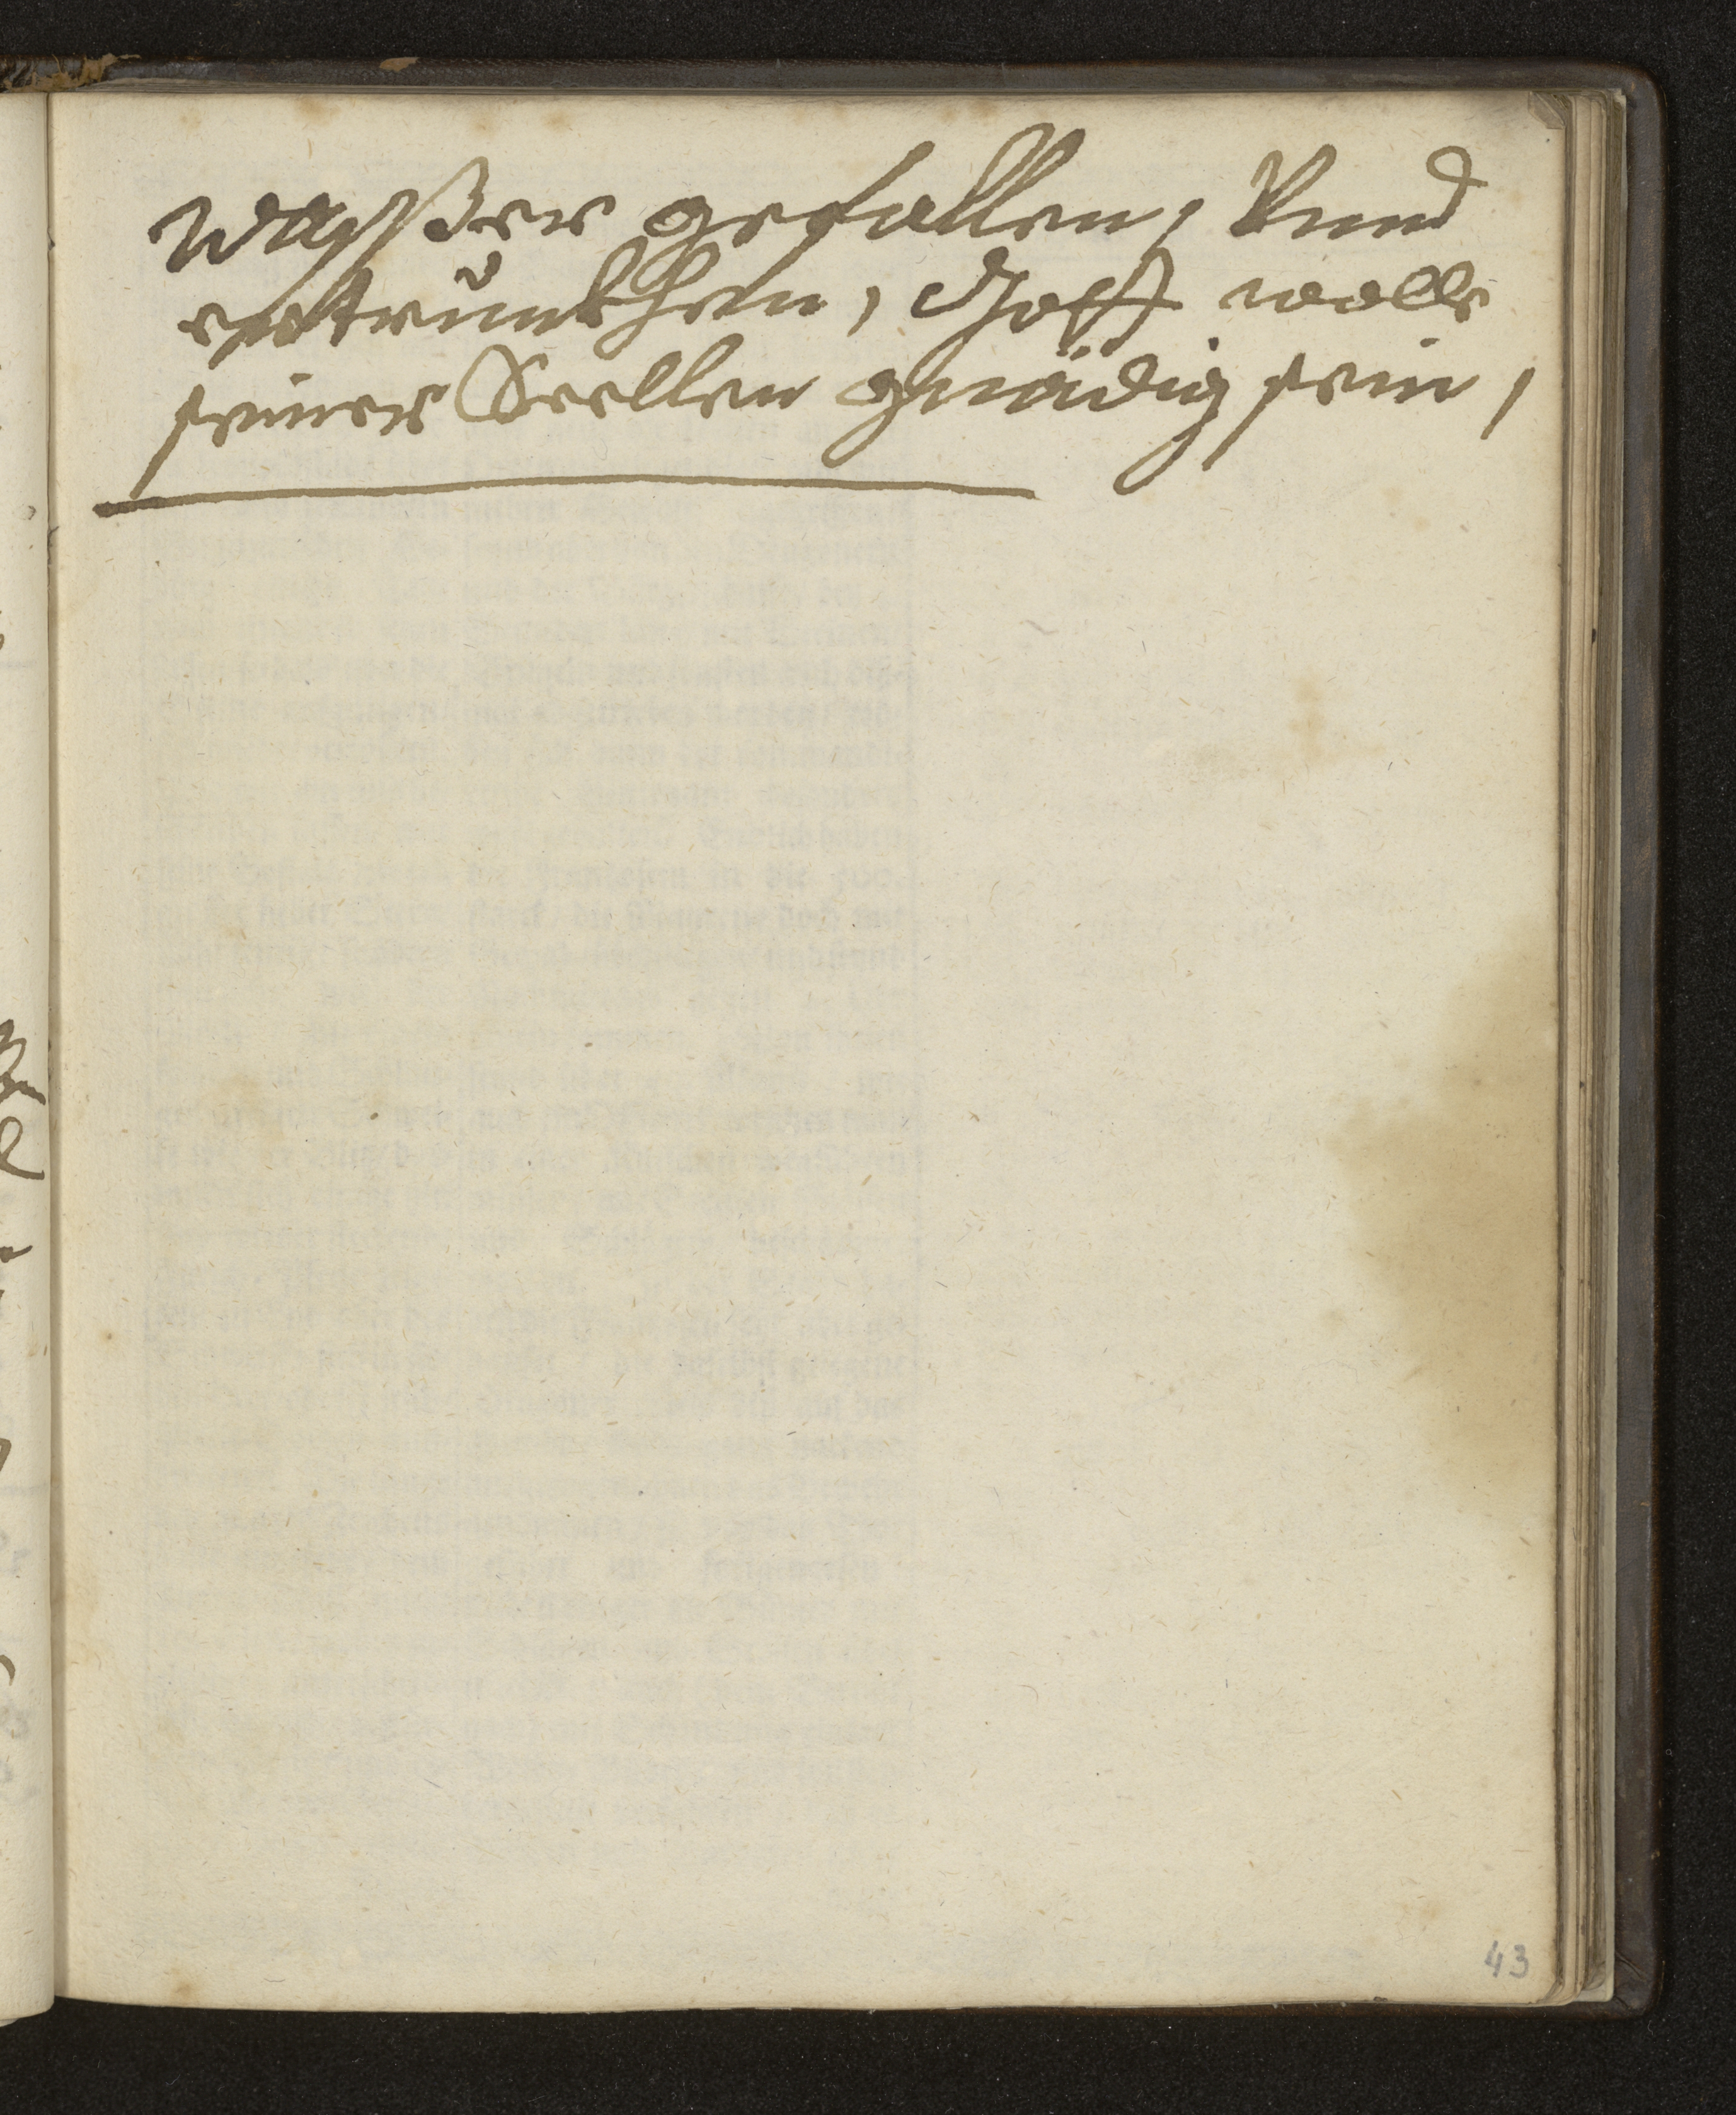 Waßßer gefallen, Vnnd
ertrunkhen, Gott wolle
seiner Seellen gnädig sein,
43